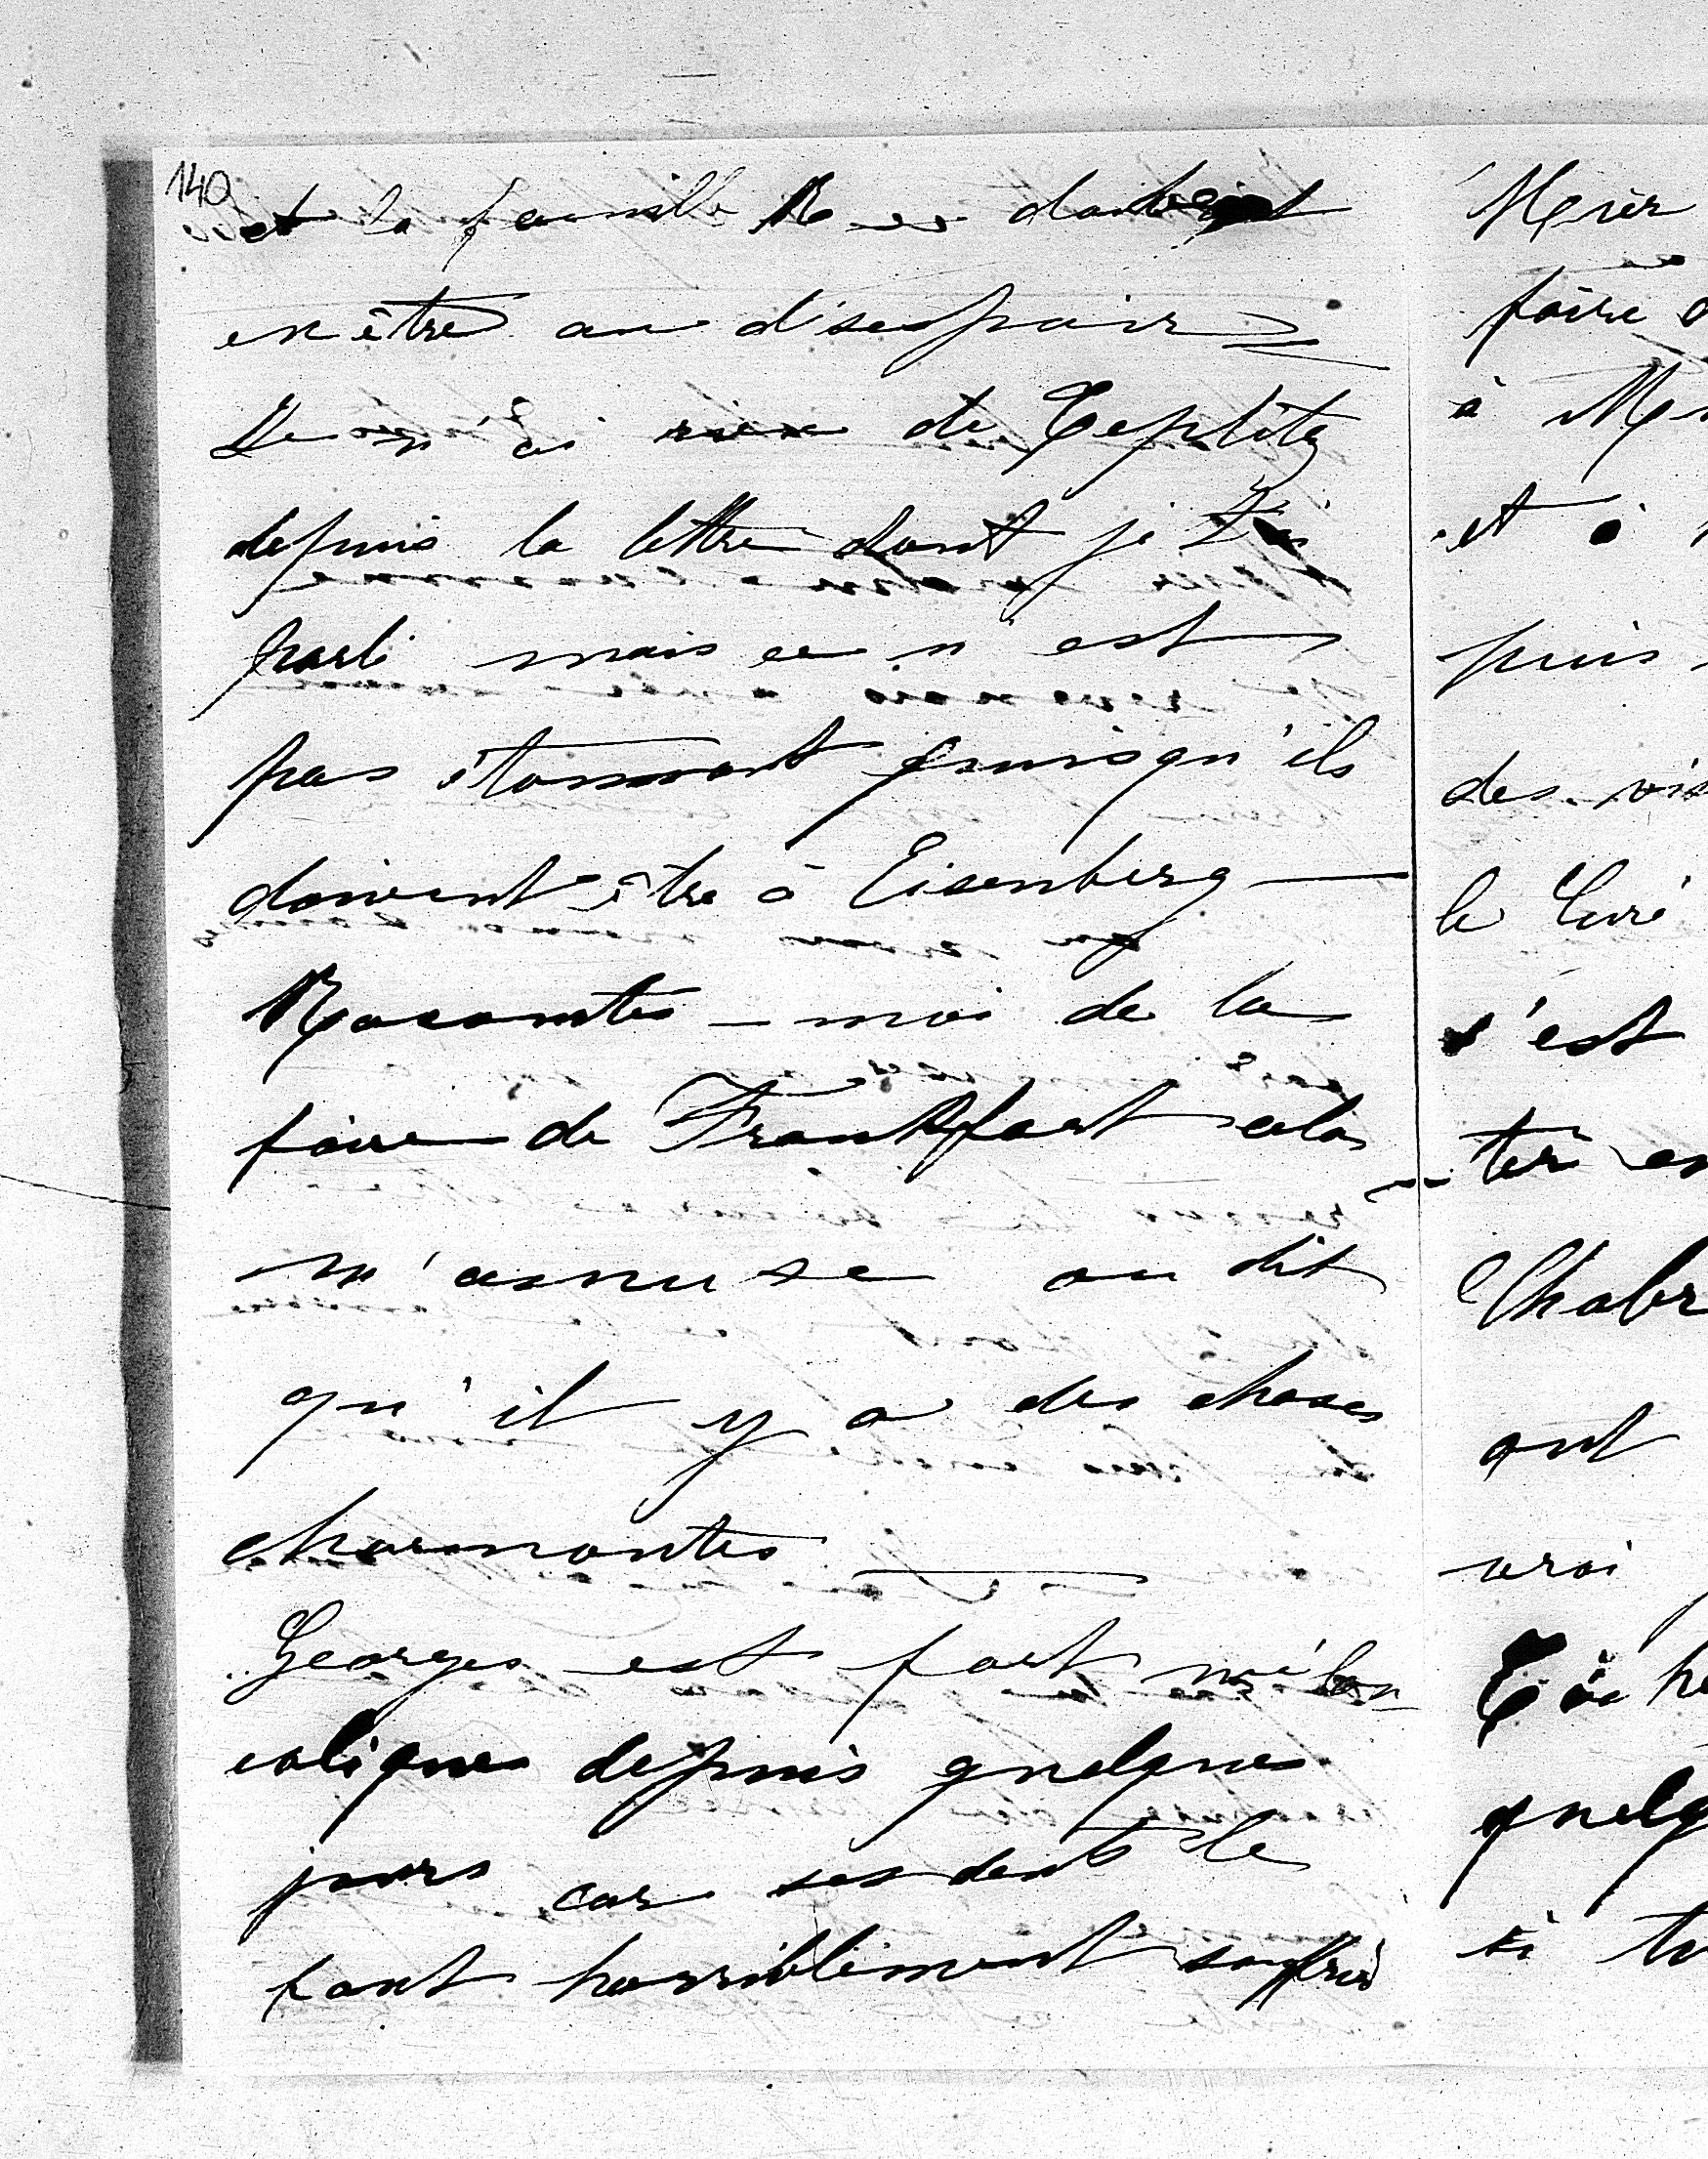 140
et la famille R doit
en être au désespoir
Je n'ai rien de Teplitz
depuis la lettre dont je t'ai
parlé mais ce n'est
pas étonnant puisqu'ils
doivent être à Eisenberg —
Racontes-moi de la
foire de Frankfort cela
m'amuse on dit
qu'il y a des choses
charmantes —
Georges est fort mélan
coliques depuis quelques
jours car ses dents le
font horriblement souffrir
faire
à
et à
puis
des vis
le Curé
s'est
ter
Chabr
ont
vrai
quelq
si tu